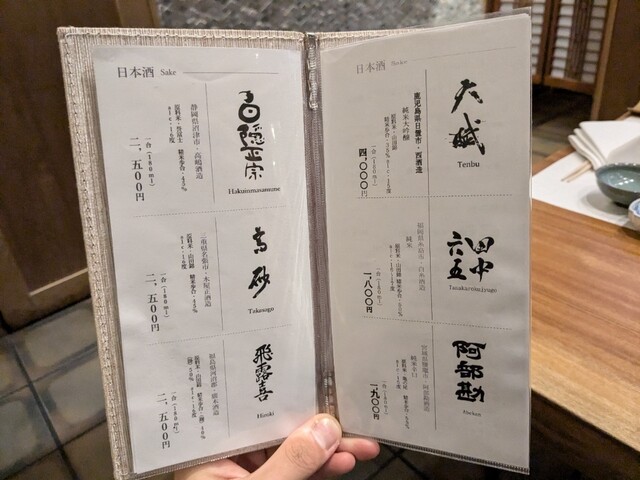 日本酒 Sake
白隠正宗
Hakuinmasamune
静岡県沼津市・高嶋酒造
二、五〇〇円
一合(180ml)
高砂
Takasago
三重県名張市・木屋正酒造
原料米・山田錦
一合(180ml)
二、五〇〇円
飛露喜
Hiroki
福島県河沼郡・廣木酒造
一合(180ml)
二、五〇〇円
日本酒 Sake
天賦
Tenbu
鹿児島県日置市・西酒造
純米大吟醸
一合(180ml)
四、〇〇〇円
田中六五
Tanakarokujyugo
福岡県糸島市・白糸酒造
純米
一合(180ml)
一、八〇〇円
阿部勘
Abekan
宮城県塩竈市・阿部勘酒造
純米辛口
一合(180ml)
一、九〇〇円